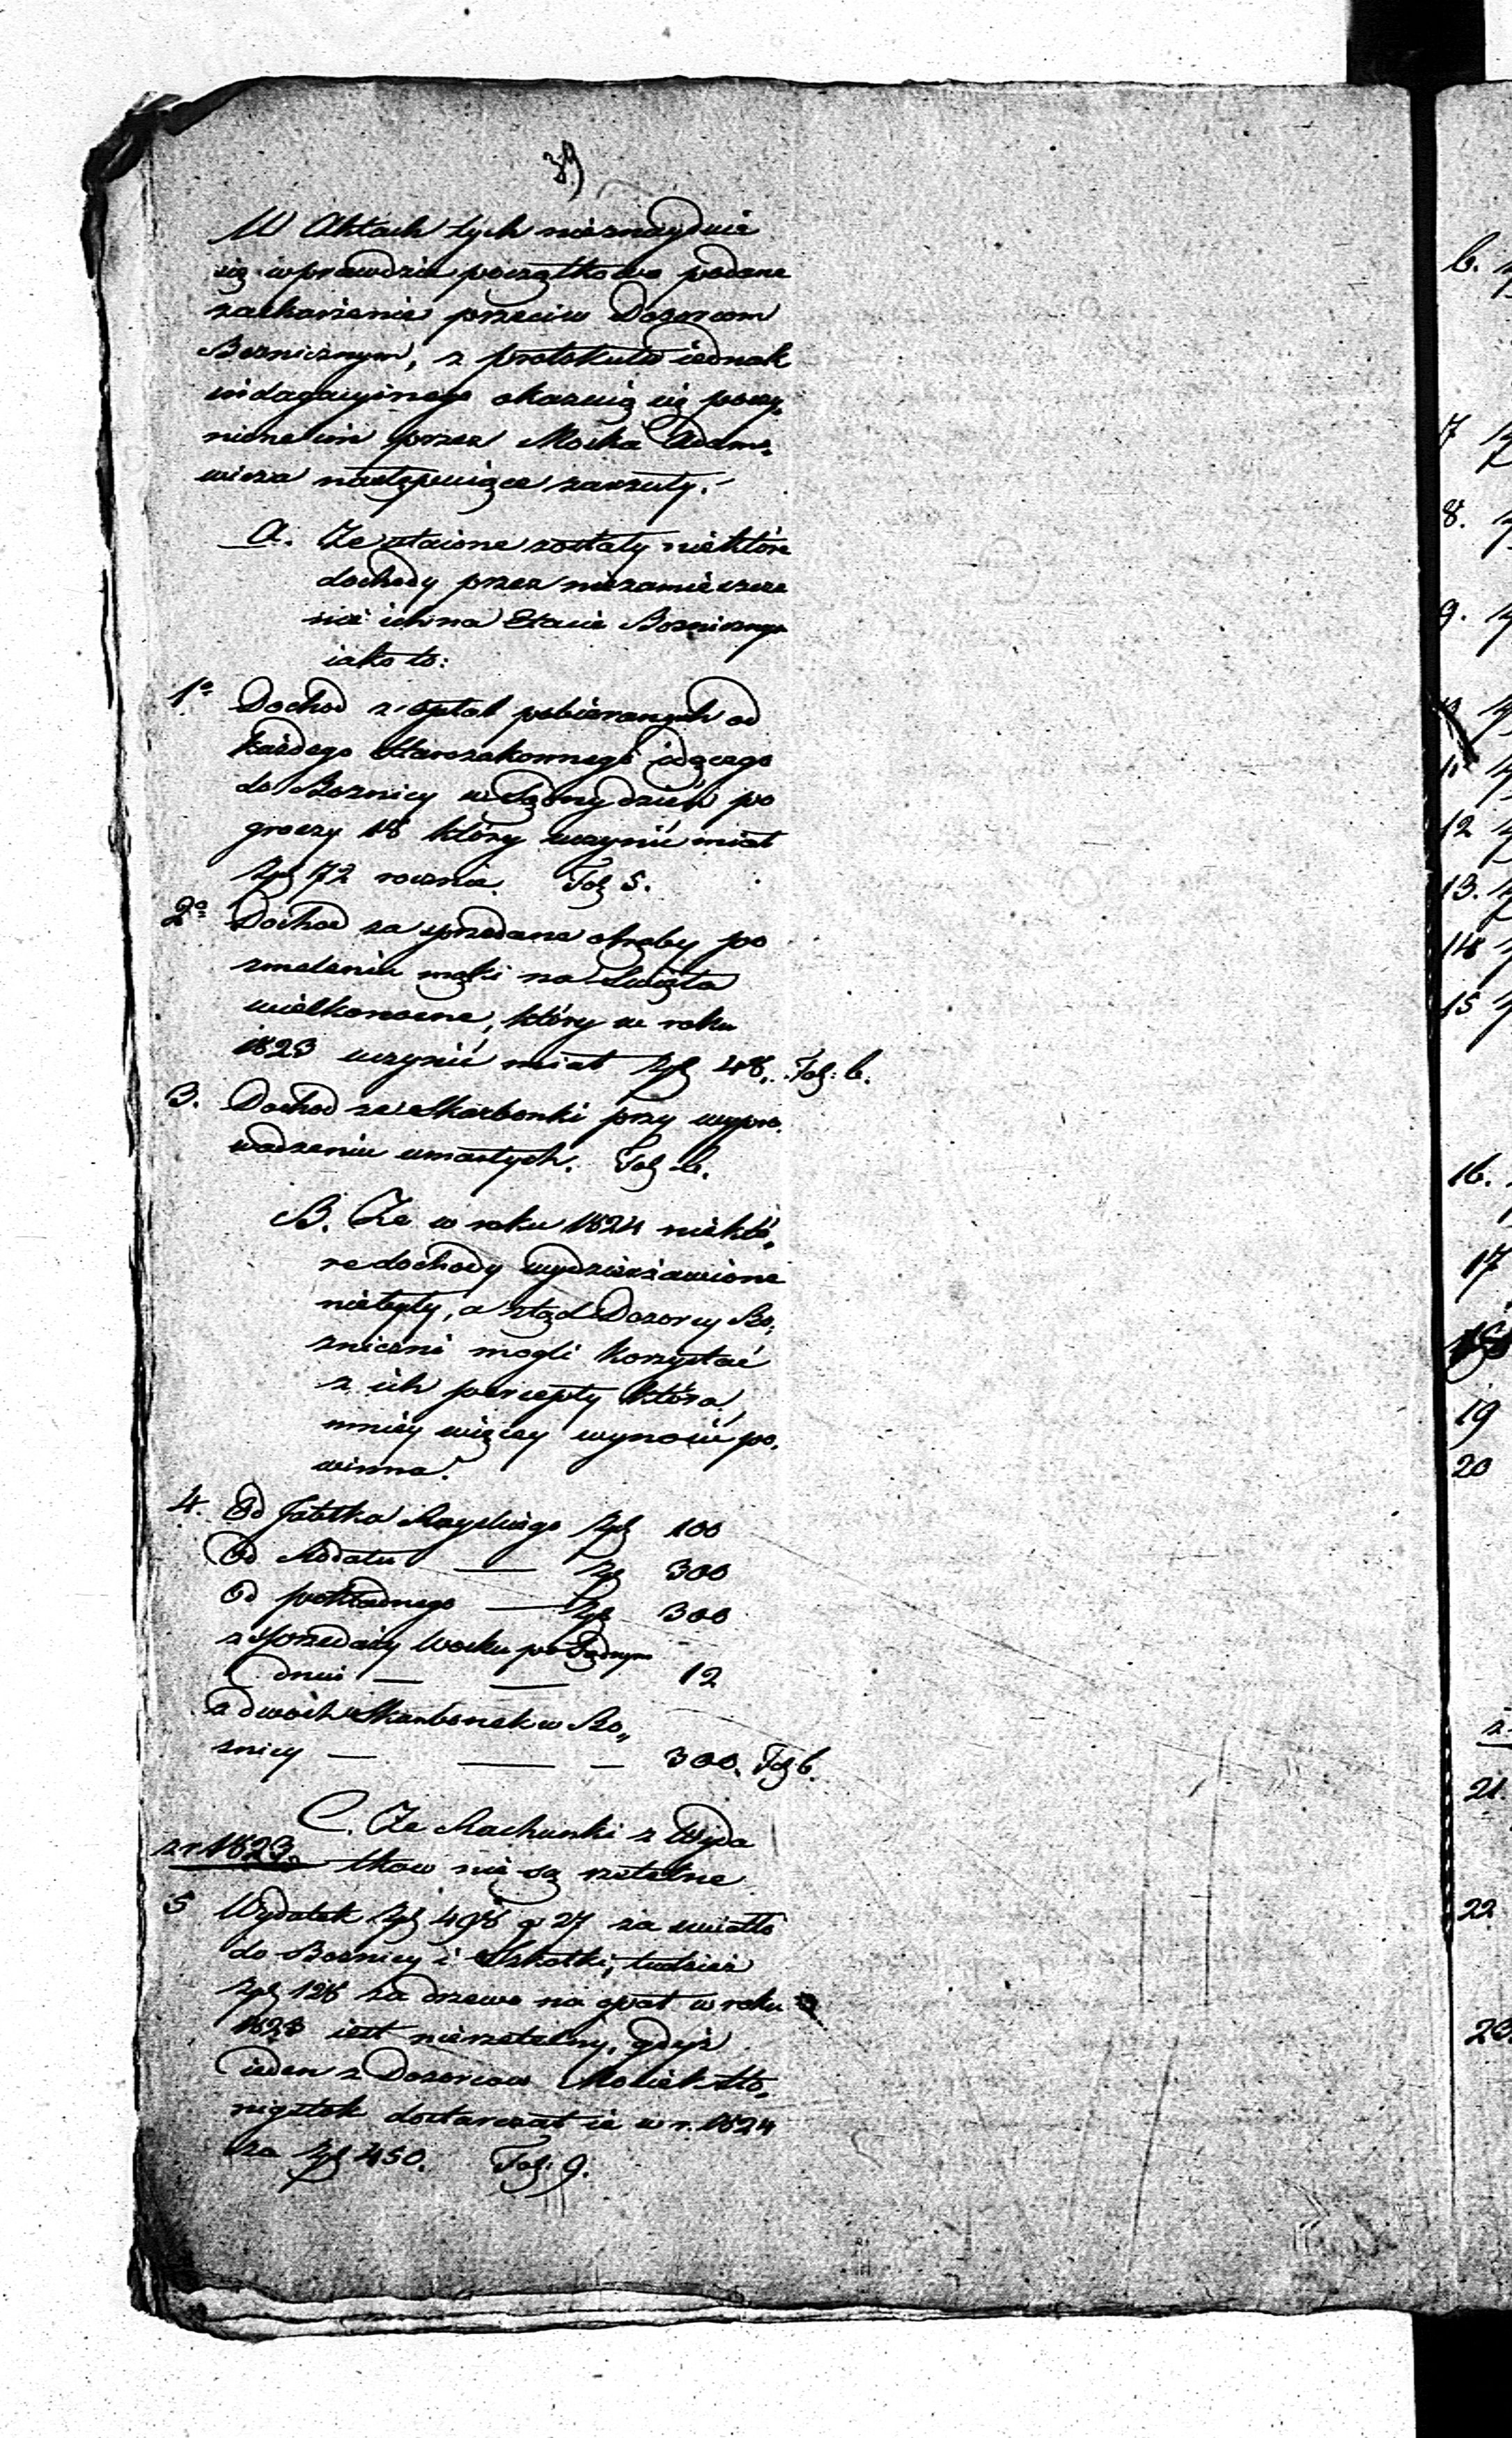 39)
W Aktach tych nieznayduie
się wprawdzie początkowo podane
zaskarzenie przeciw Dozorcom
Boznicznym, z protokułu iednak
indagacyinego okazuią się poczy„
nione im przez Moska Adamo„
wicza następuiące zarzuty.
A. Ze utaione zostały niektóre
dochody przez niezamieszcze
nie ich na Etacie Boznicznym
iako to:
1o Dochod z opłat pobieranych od
każdego Starozakonnego idącego
do Boznicy w Sądny dzień po
groszy 18 który uczynić miał
Zpl 72 rocznie. Fol 5.
2o Dochod za sprzedane otręby po
zmeleniu mąki na Swięta
wielkanocne, który w roku
1823 uczynić miał Zpl 48. Fol: 6.
3. Dochod ze Skarbonki przy wypro„
wadzeniu umarłych. Fol 6.
B. Ze w roku 1824 niektó„
re dochody wydzierżawione
niebyły, a ztąd Dozorcy Bo„
zniczni mogli korzystać
z ich percepty która
mniey więcey wynosić po„
winna.
4. Od Jabłka Rayskiego Zpl 100
Od Rodału — Zpl 300
Od pokładnego — Zpl 300
z sprzedaży Wosku po Sądnym
dniu — — 12
z dwóch Skarbonek w Bo„
znicy — — — 300. Fol 6.
C. Ze Rachunki z Wyda
z r. 1823. tkow nie są rzetelne
5 Wydatek Zpl 498 gr 27 za swiatło
do Boznicy i Szkołki, tudzież
Zpl 128 za drzewo na opał w roku
1823 iest nierzetelny, gdyż
ieden z Dozorcow Mosiek
dostarczał ie w r. 1824
za Zpl 450. Fol: 9.
6.
7
8.
9.
11
12
13.
14
15
16.
17
18
19
20
21.
22
23.